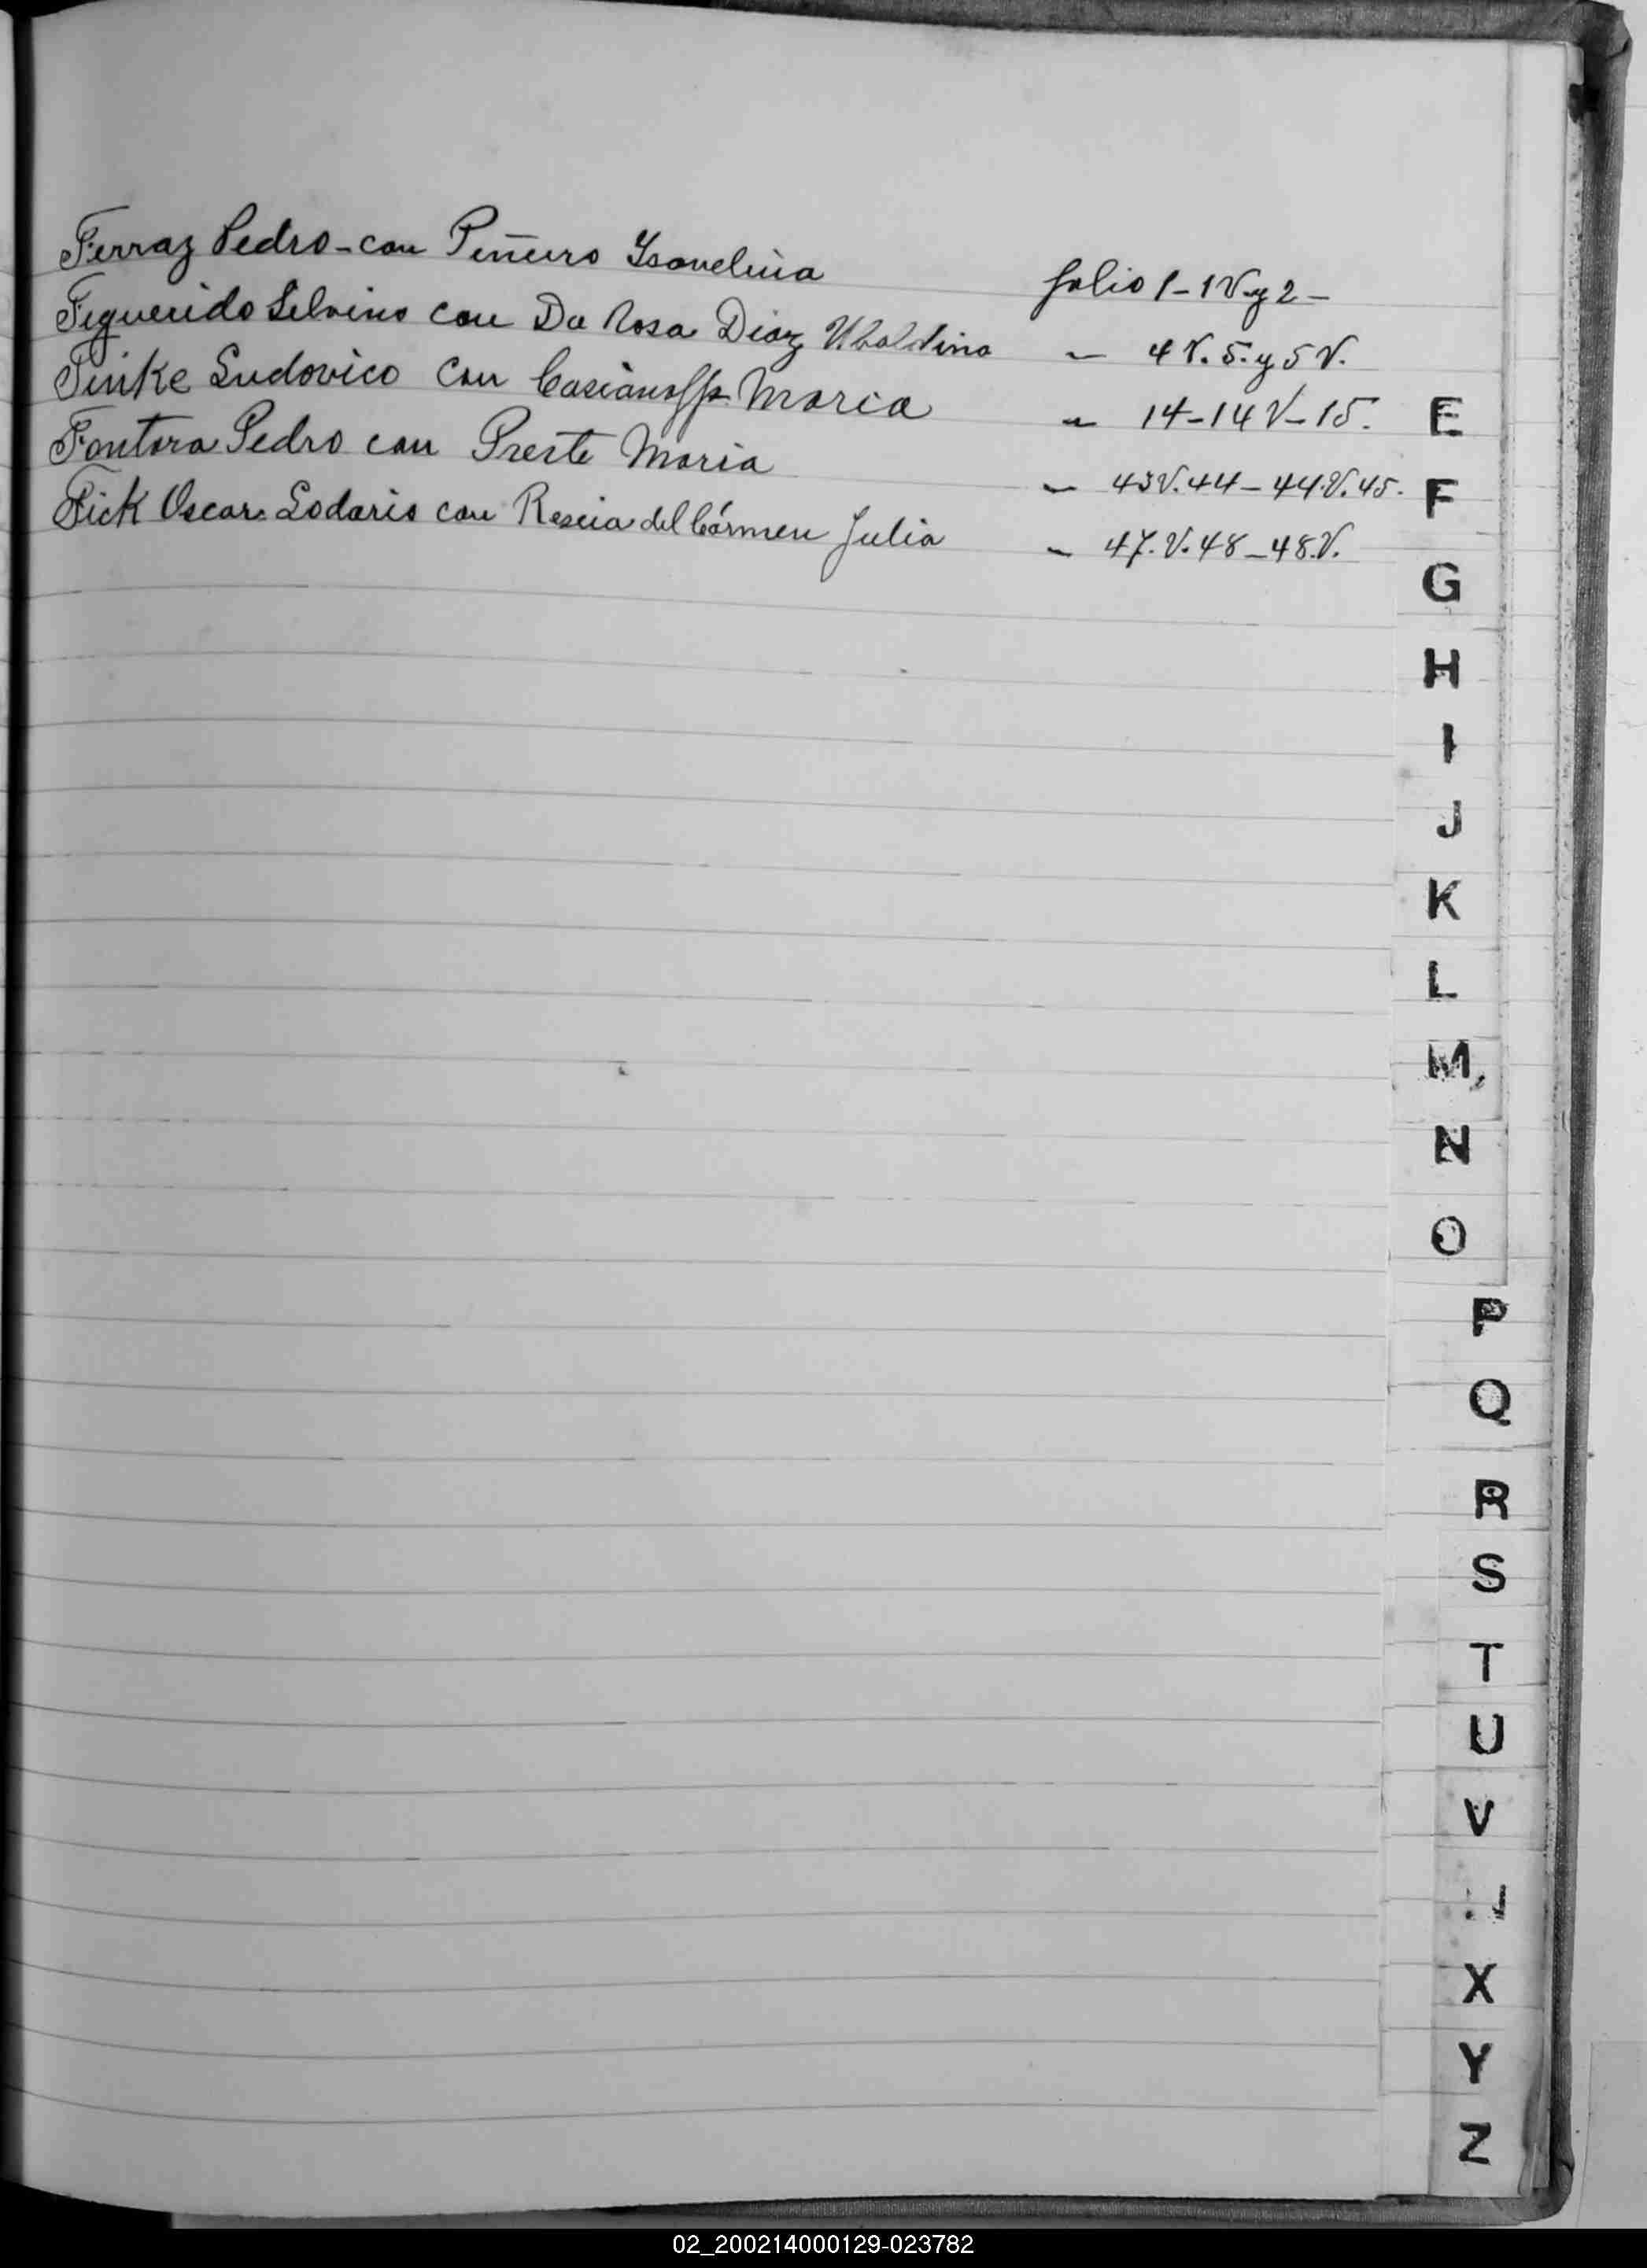 Ferraz Pedro - con Piñeiro Isavelina folio 1 - 1V. y 2 -
Figuerido Silvino con Da Rosa Diaz Ubaldina " 4 V. 5. y 5 V.
Finke Ludovico con Casianoff Maria " 14 - 14 V - 15.
Fontora Pedro con Preste Maria " 43V. 44 - 44.V. 45.
Fick Oscar Lodario con del Cármen Julia " 47. V. 48 - 48. V.
E
F
G
H
I
J
K
L
M
N
O
P
Q
R
S
T
U
V
X
Y
Z
02_200214000129-023782